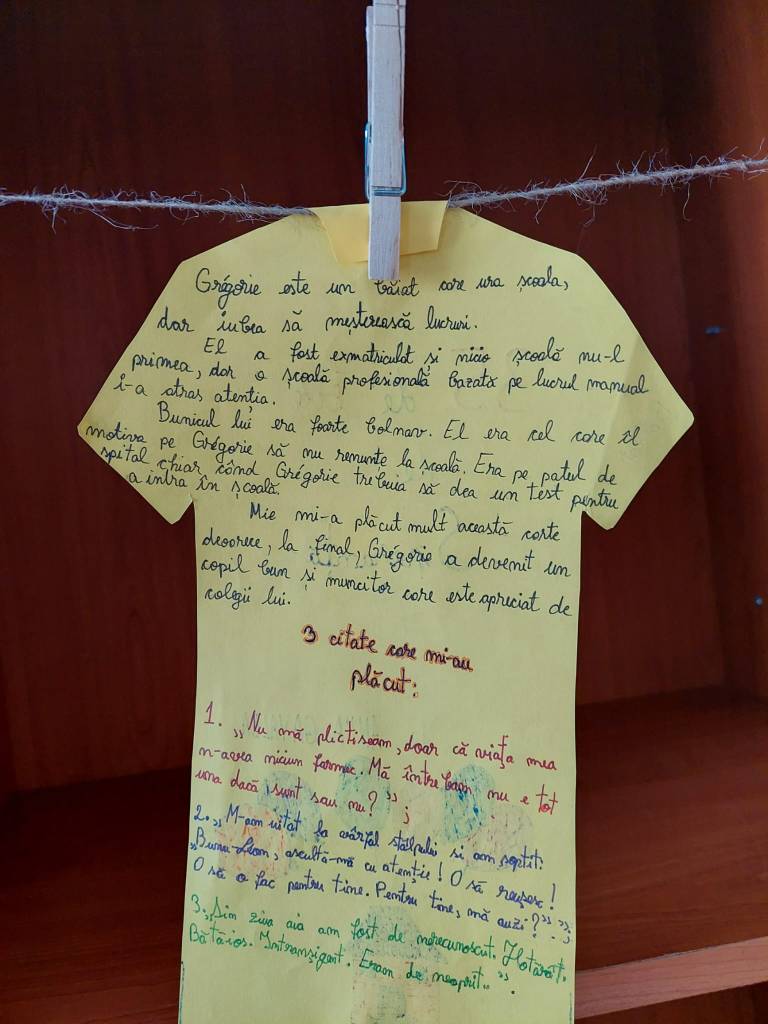 Grégorie este un băiat care ura școala,
dar iubea să meșterească lucruri.
El a fost exmatriculat și nicio școală nu-l
primea, dar o școală profesională bazată pe lucrul manual
i-a atras atenția.
Bunicul lui era foarte bolnav. El era cel care îl
motiva pe Grégorie să nu renunțe la școală. Era pe patul de
spital chiar când Grégorie trebuia să dea un test pentru
a intra în școală.
Mie mi-a plăcut mult această carte
deoarece, la final, Grégorie a devenit un
copil bun și muncitor care este apreciat de
colegii lui.
3 citate care mi-au
plăcut:
1. „Nu mă plictiseam, doar că viața mea
n-avea niciun farmec. Mă întrebam nu e tot
una dacă sunt sau nu?” ;
2. „M-am uitat la vârful stâlpului și am șoptit:
„Bunu-Leon, ascultă-mă cu atenție! O să reușesc!
O să o fac pentru tine. Pentru tine, mă auzi?”” ;
3. „Din ziua aia am fost de nerecunoscut. Hotărât.
Bătăios. Intransigent. Eram de neoprit.”.